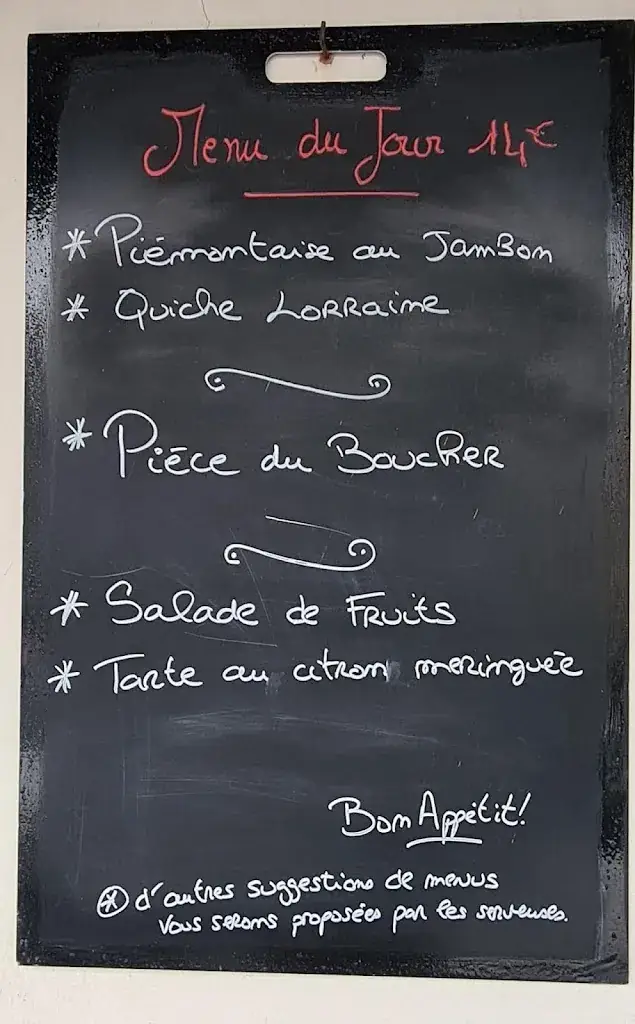 Menu du Jour 14€
* Piémontaise au JamBon
* Quiche LORRaine
* Pièce du BoucHeR
* Salade de FRuits
* Tarte au citron meringuée
Bon Appétit!
* d'autres suggestions de menus
vous serons proposées par les serveuses.